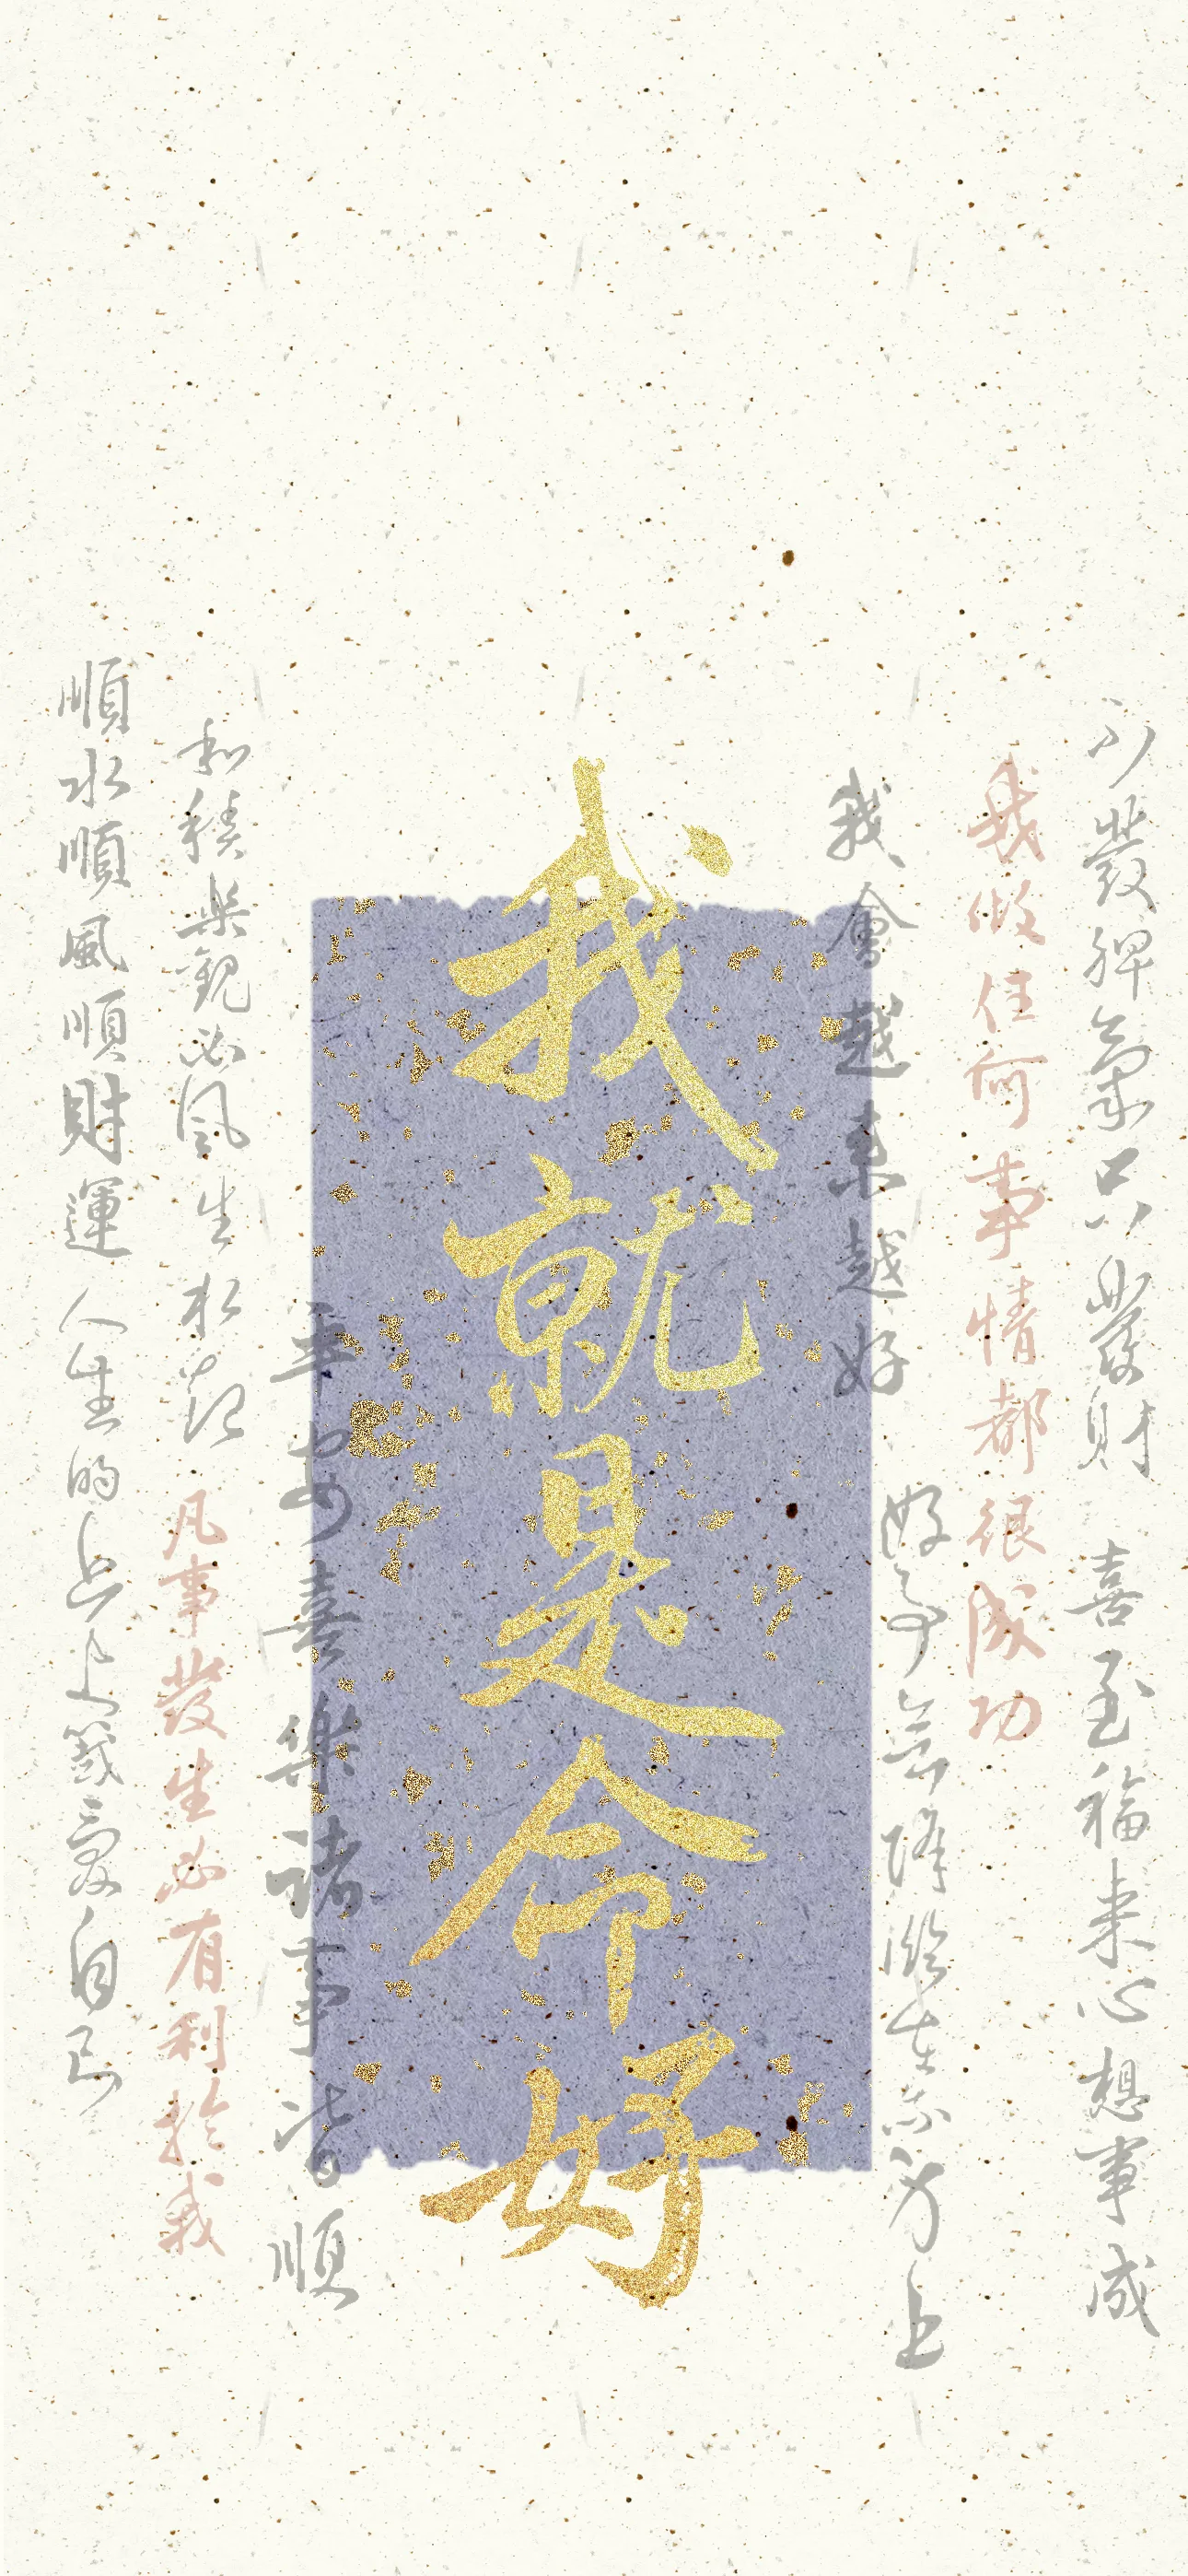 不發脾氣只發財 喜至福来心想事成
我做任何事情都很成功
我會越来越好
好事會降臨在 上
我就是命好
平安喜樂諸事皆順
和積樂觀必風生水起
凡事發生必有利於我
順水順風順財運
人生的 愛自己